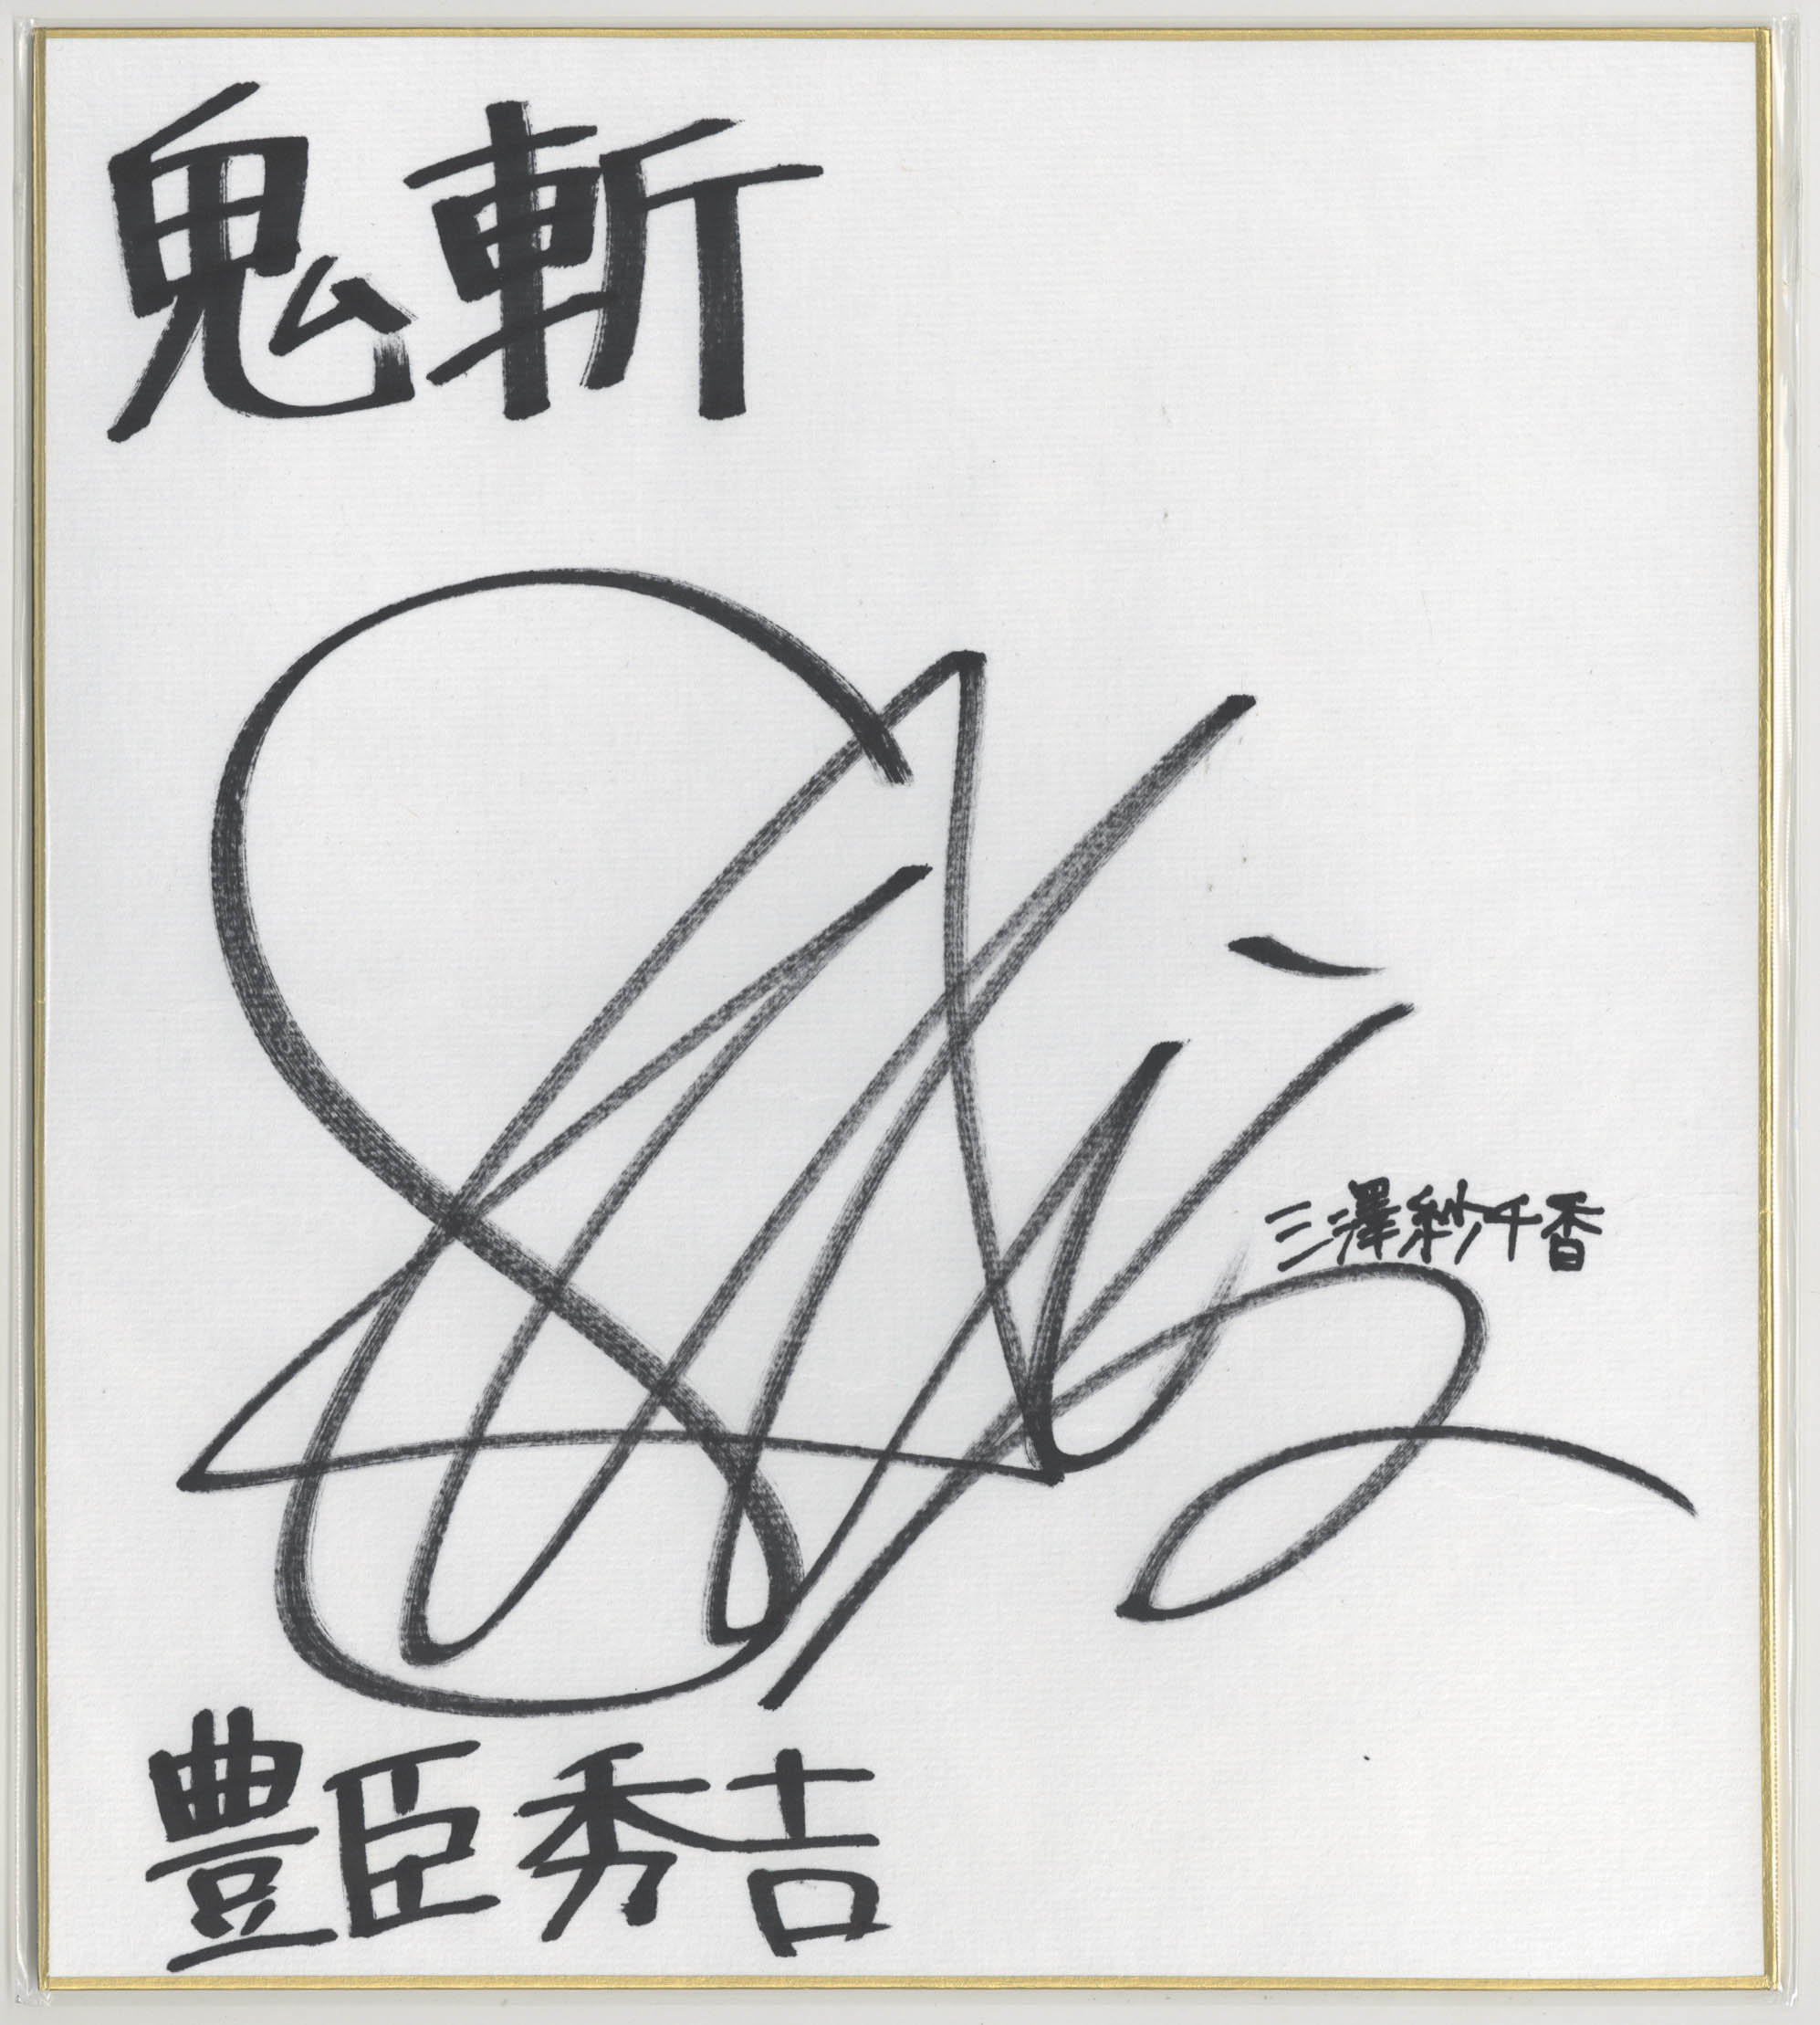 鬼斬
三澤紗千香
豊臣秀吉